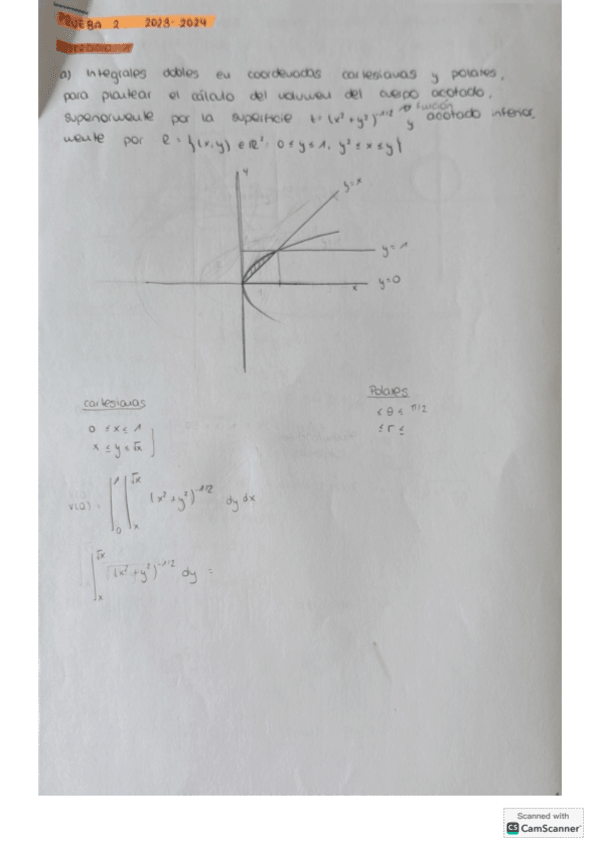 PRUEBA 2 2023-2024
a) Integrales dobles en coordenadas cartesianas y polares,
para plantear el cálculo del volumen del cuerpo acotado,
función
superiormente por la superficie z = (x² + y²)^-1/2 y acotado inferior,
mente por R = {(x,y) ∈ R²: 0 ≤ y ≤ 1, y² ≤ x ≤ y}
y
y=x
y=1
x
y=0
cartesianas
Polares
0 ≤ x ≤ 1
≤ θ ≤ π/2
x ≤ y ≤ √x
≤ r ≤
V(Q) = ∫₀¹ ∫ₓ^√x (x² + y²)^-1/2 dy dx
∫ₓ^√x (x² + y²)^-1/2 dy =
Scanned with
CS CamScanner